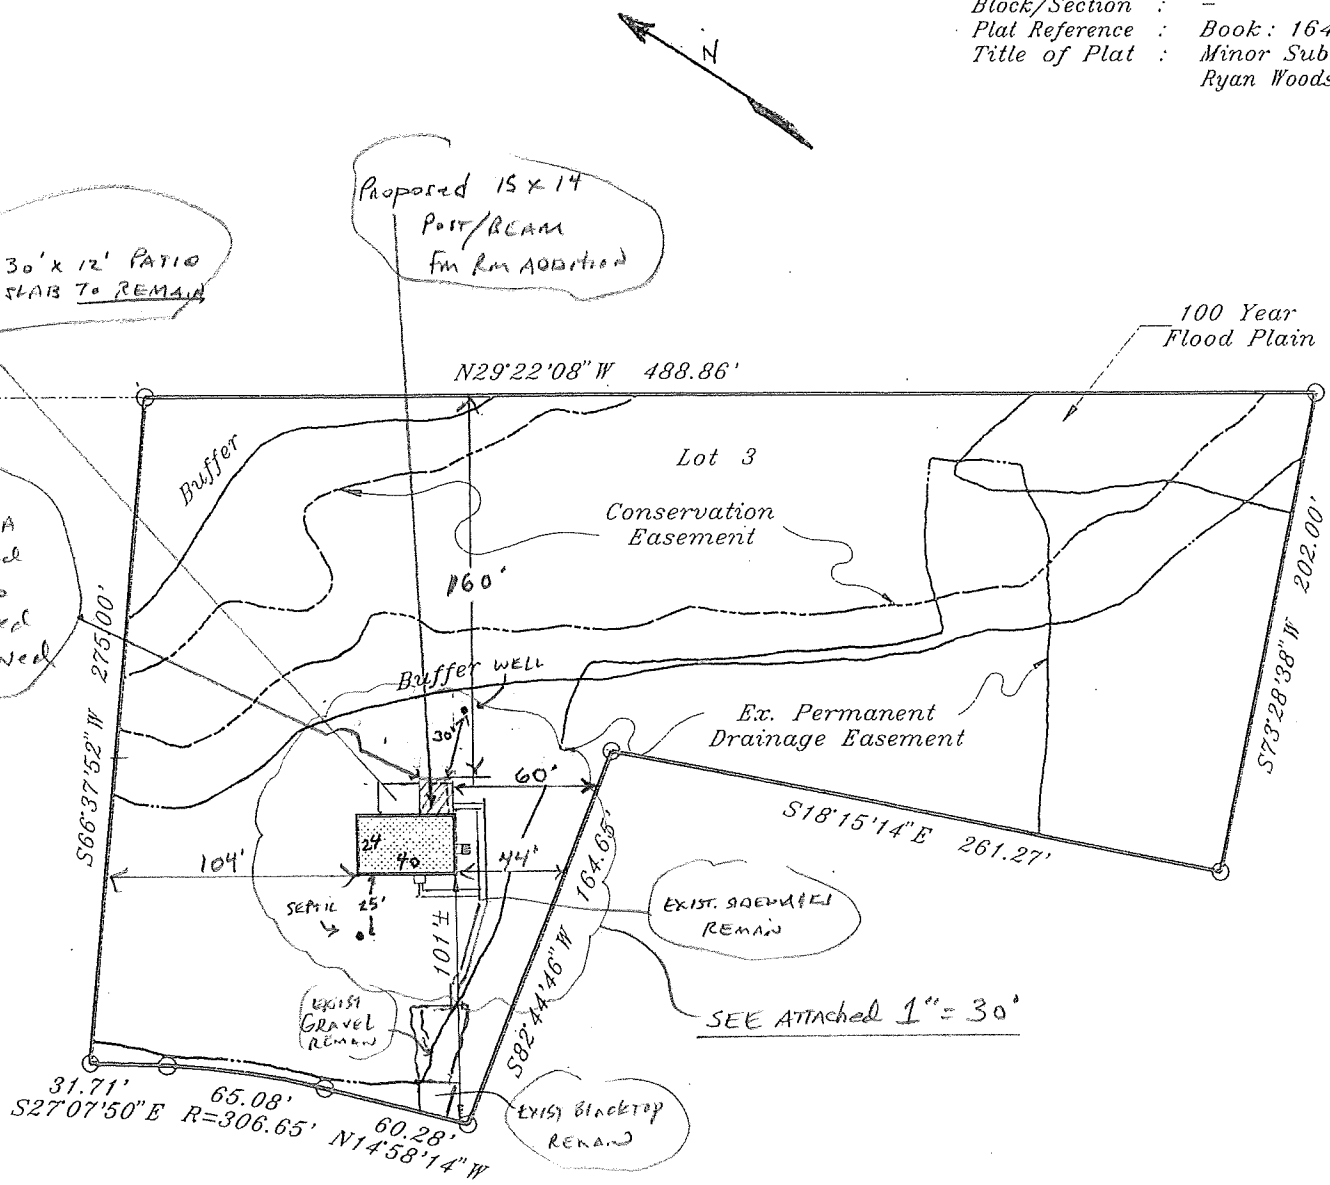 Block/Section : -
Plat Reference : Book: 164
Title of Plat : Minor Sub
Ryan Woods
N
Proposed 15 x 14
Post/BEAM
Fm Rm ADDITION
30' x 12' PATIO
SLAB To REMAIN
100 Year
Flood Plain
N29°22'08" W 488.86'
Buffer
Lot 3
Conservation
Easement
160'
S66°37'52" W 275.00'
S73°28'38" W 202.00'
Buffer
WELL
30'
Ex. Permanent
Drainage Easement
60'
S18°15'14"E 261.27'
24
40
104'
44'
SEPTIC 25'
101'±
S82°44'46" W 164.65'
EXIST. SIDEWALKS
REMAIN
EXIST
GRAVEL
REMAIN
SEE ATTAChed 1"= 30'
EXIST BlackTop
REMAIN
31.71'
S27°07'50"E
65.08'
R=306.65'
60.28'
N14°58'14" W